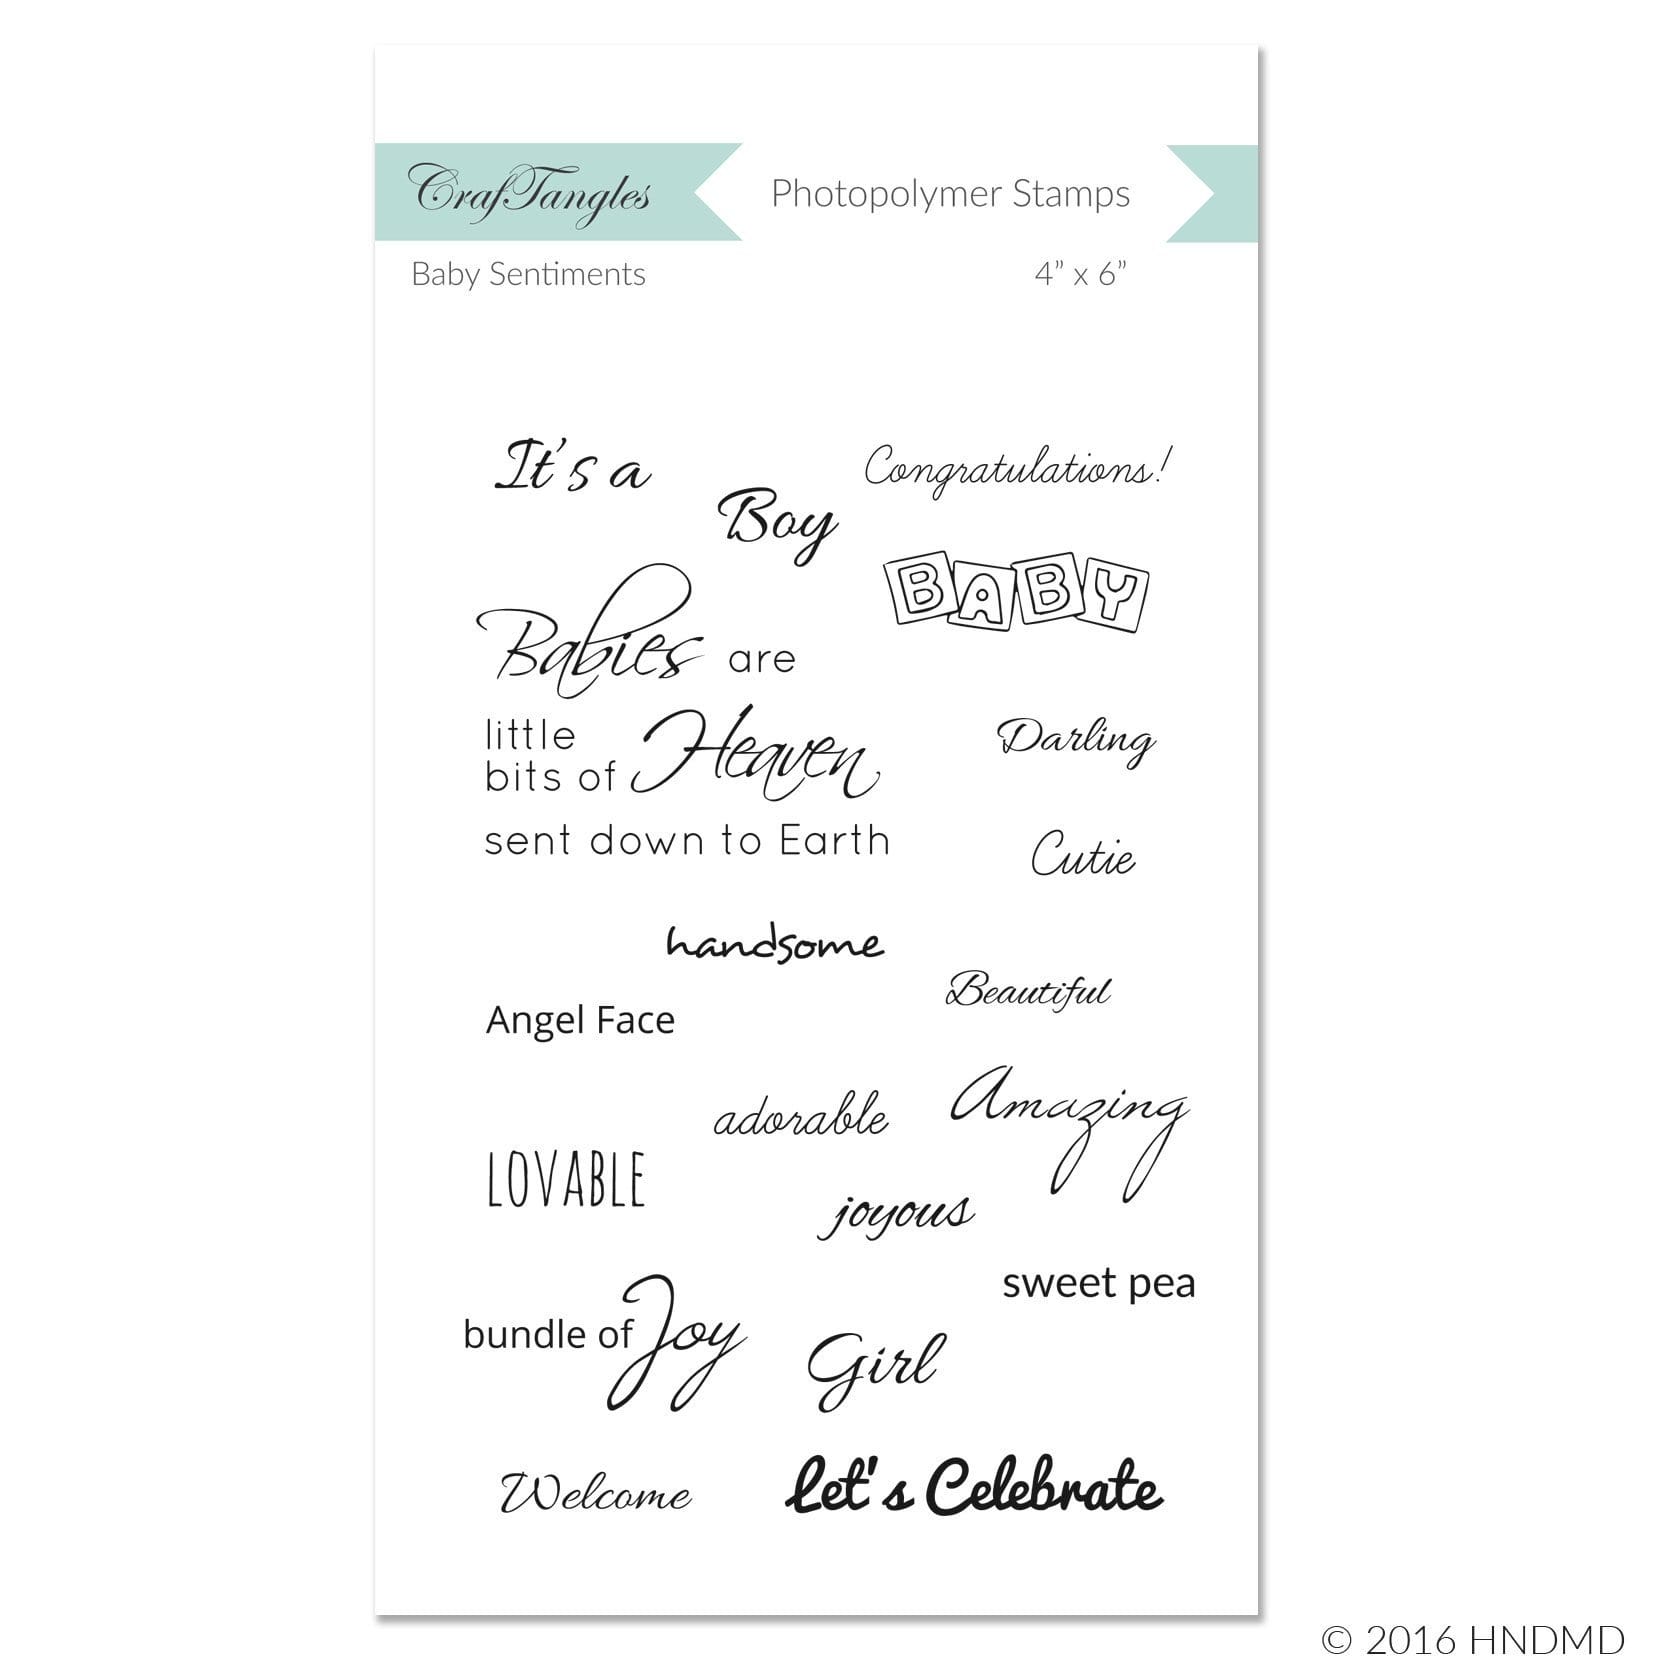 CrafTangles
Photopolymer Stamps
Baby Sentiments
4” x 6”
It's a
Boy
Congratulations!
BABY
Babies are
little
bits of Heaven
sent down to Earth
Darling
Cutie
handsome
Beautiful
Angel Face
adorable
Amazing
LOVABLE
joyous
sweet pea
bundle of Joy
Girl
Welcome
let's Celebrate
© 2016 HNDMD